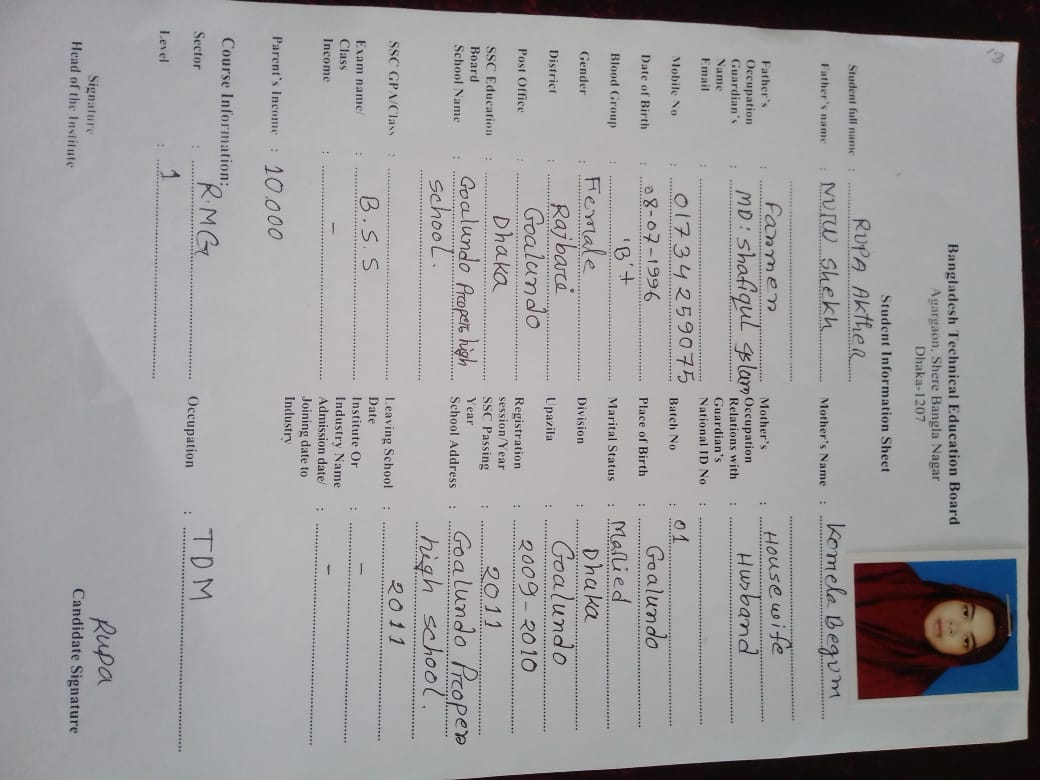 Bangladesh Technical Education Board
Agargaon, Shere Bangla Nagar
Dhaka-1207
Student Information Sheet
Student full name : RUPA AKther
Father's name : NURU Shekh Mother's Name : Komela Begum
Father's Occupation : Farmer Mother's Occupation : House wife
Guardian's Name : MD: Shafiqul Islam Relations with Guardian's : Husband
Email : National ID No :
Mobile No : 01734259075 Batch No : 01
Date of Birth : 08-07-1996 Place of Birth : Goalundo
Blood Group : 'B'+ Marital Status : Married
Gender : Female Division : Dhaka
District : Rajbari Upazila : Goalundo
Post Office : Goalundo Registration session/Year : 2009-2010
SSC Education Board : Dhaka SSC Passing Year : 2011
School Name : Goalundo Proper high school. School Address : Goalundo Proper high school.
SSC GPA/Class : Leaving School Date : 2011
Exam name/ Class : B.S.S Institute Or Industry Name : -
Income : - Admission date/ Joining date to Industry : -
Parent's Income : 10.000
Course Information:
Sector : R.MG Occupation : TDM
Level : 1
Rupa
Signature
Head of the Institute
Candidate Signature